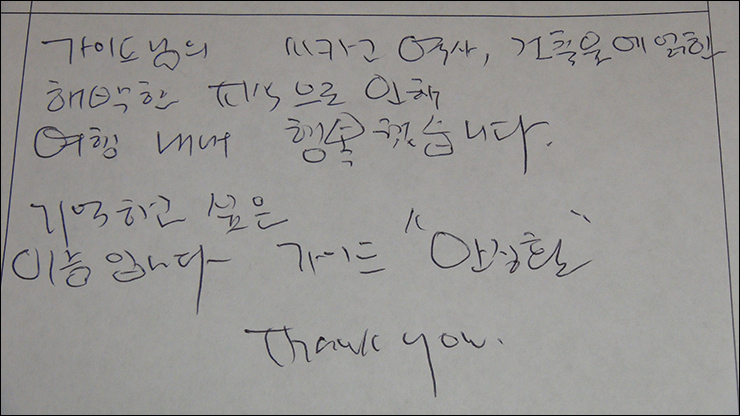 가이드님의 시카고 역사, 건축물에 얽힌
해박한 지식으로 인해
여행 내내 행복했습니다.
기억하고 싶은
이름입니다 가이드 "안정환"
Thank you.